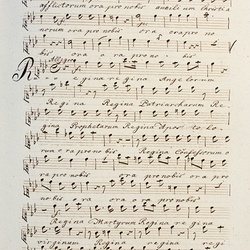 afflictorum ora pro nobis auxilium Christia
norum ora pro nobis ora ora pro no
bis ora ora pro no bis
Allegro
Regina regina Angelorum
Regina Regina Patriarcharum Re
gina Prophetarum Regina
Regina Confessorum o
ra pro nobis ora pro nobis ora pro
nobis ora ora pro nobis
Regina Martyrum Regina regina
virginum Regina regina regi